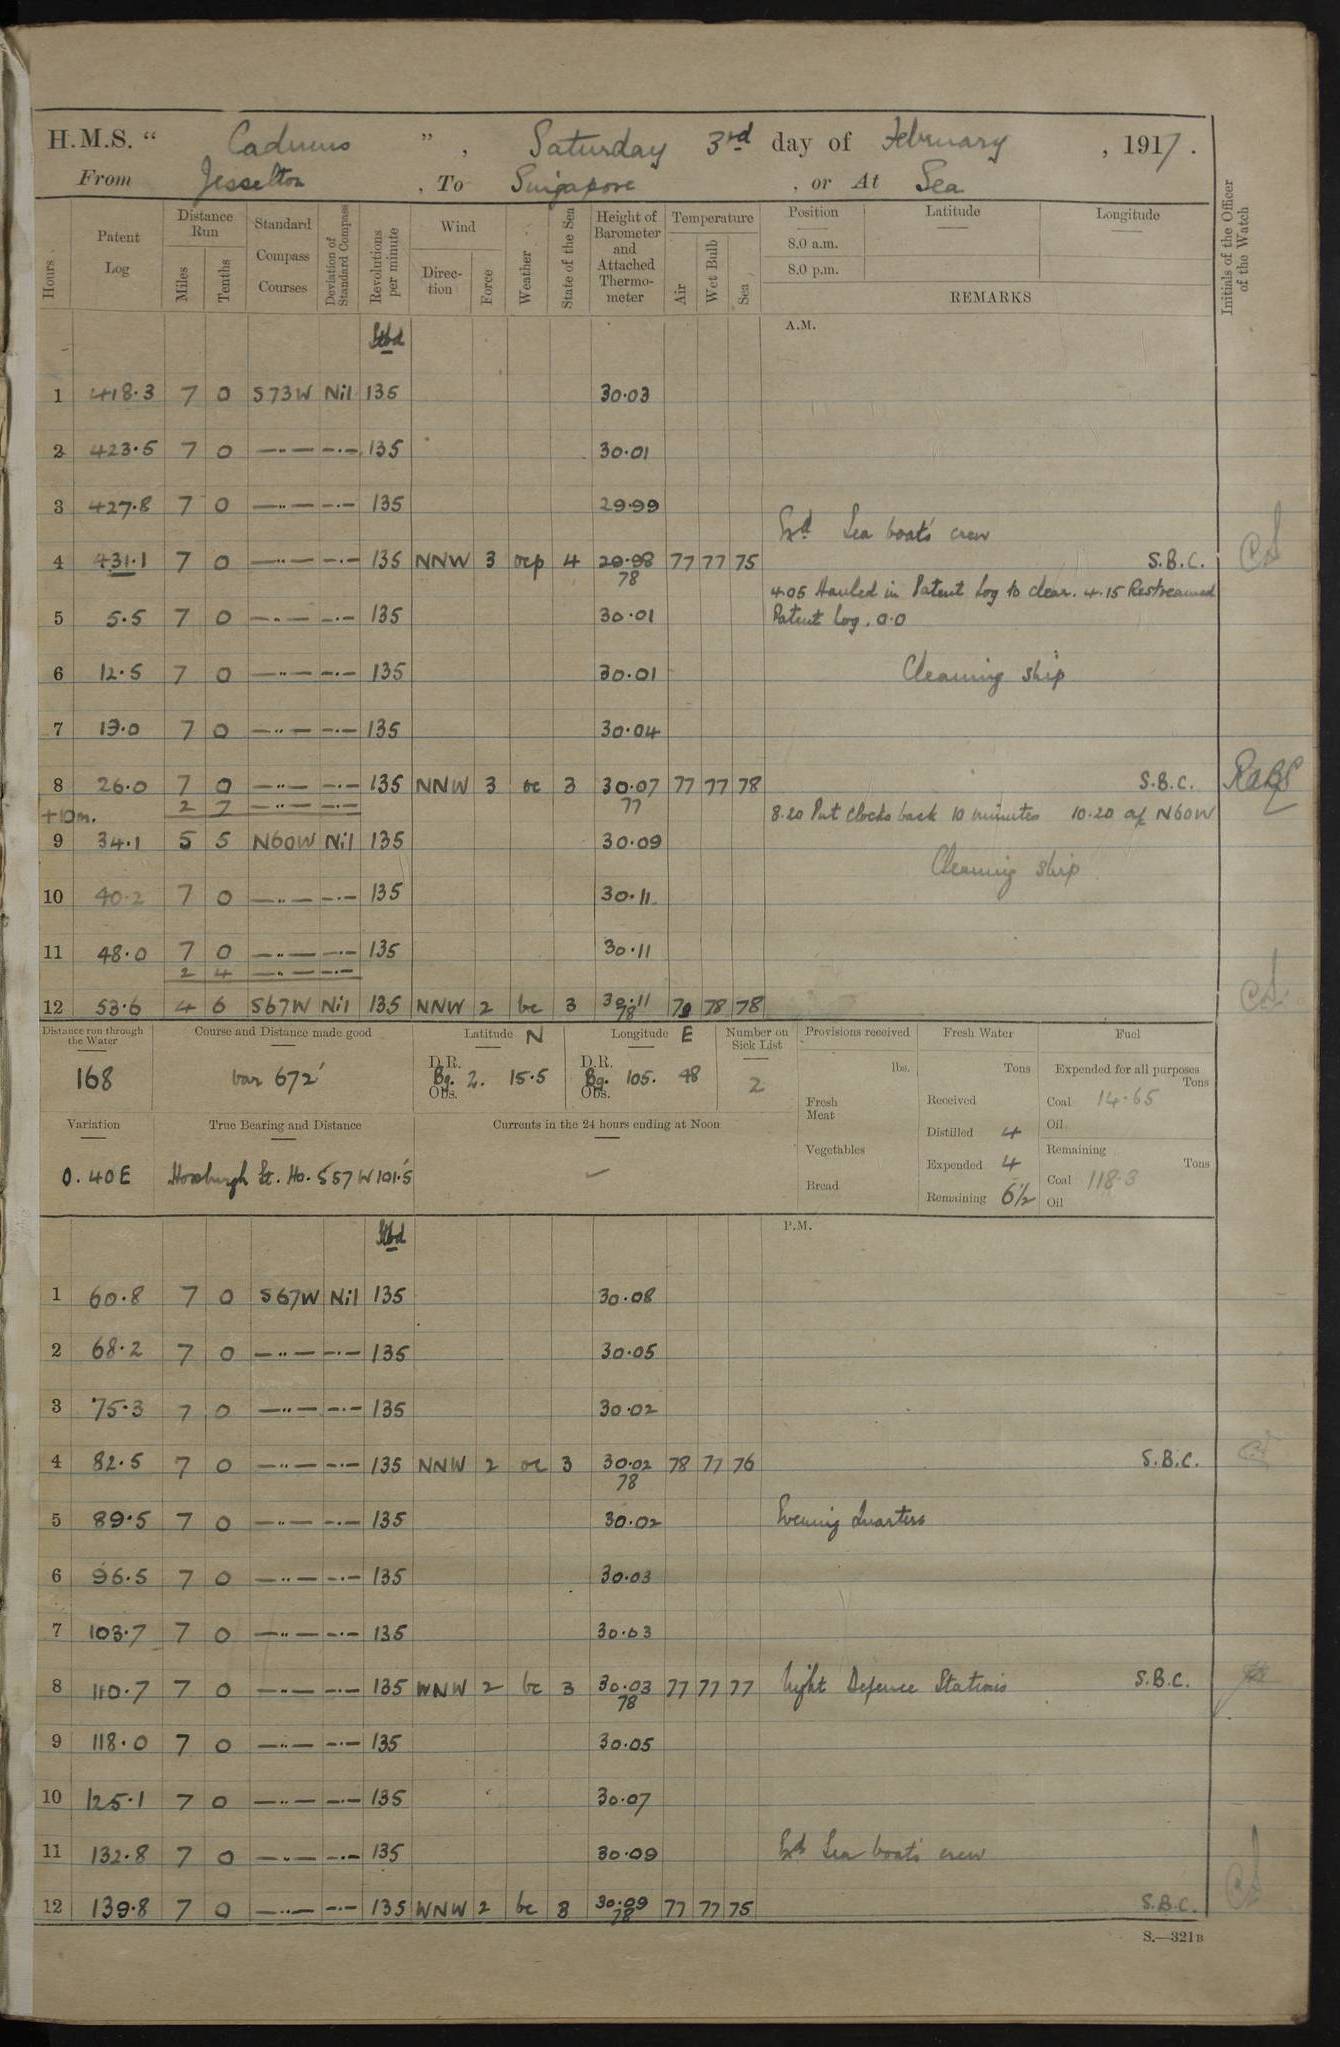 H.M.S. “ Cadmus ” , Saturday 3rd day of February , 1917.
From Jesselton , To Singapore , or At Sea
Hours
Patent Log
Distance Run
Miles
Tenths
Standard Compass Courses
Deviation of Standard Compass
Revolutions per minute
Wind
Direction
Force
Weather
State of the Sea
Height of Barometer and Attached Thermometer
Temperature
Air
Wet Bulb
Sea
Position
Latitude
Longitude
8.0 a.m.
8.0 p.m.
REMARKS
Initials of the Officer of the Watch
Stbd
A.M.
1 418.3 7 0 S73W Nil 135 30.03
2 423.5 7 0 —..— —.— 135 30.01
3 427.8 7 0 —..— —.— 135 29.99
Exd Sea boat's crew
4 431.1 7 0 —..— —.— 135 NNW 3 ocp 4 29.98 77 77 75 S.B.C.
78
4.05 Hauled in Patent Log to clear. 4.15 Restreamed
5 5.5 7 0 —..— —.— 135 30.01 Patent Log. 0.0
6 12.5 7 0 —..— —.— 135 30.01 Cleaning ship
7 19.0 7 0 —..— —.— 135 30.04
8 26.0 7 0 —..— —.— 135 NNW 3 oc 3 30.07 77 77 78 S.B.C.
+10m. 2 7 —..— —.— 77 8.20 Put clocks back 10 minutes 10.20 a/c N60W
9 34.1 5 5 N60W Nil 135 30.09
Cleaning ship
10 40.2 7 0 —..— —.— 135 30.11
11 48.0 7 0 —..— —.— 135 30.11
2 4 —..— —.—
12 53.6 4 6 S67W Nil 135 NNW 2 bc 3 30.11 78 78
78
Distance run through the Water
168
Course and Distance made good
var 672'
Latitude N
D.R.
Bg. 2. 15.5
Obs.
Longitude E
D.R.
Bg. 105. 48
Obs.
Number on Sick List
2
Provisions received
lbs.
Fresh Meat
Vegetables
Bread
Fresh Water
Tons
Received
Distilled 4
Expended 4
Remaining 6½
Fuel
Expended for all purposes
Tons
Coal 14.65
Oil
Remaining
Tons
Coal 118.3
Oil
Variation
0.40E
True Bearing and Distance
Horsburgh Lt. Ho. S57W 101.5'
Currents in the 24 hours ending at Noon
Stbd
P.M.
1 60.8 7 0 S67W Nil 135 30.08
2 68.2 7 0 —..— —.— 135 30.05
3 75.3 7 0 —..— —.— 135 30.02
4 82.5 7 0 —..— —.— 135 NNW 2 oc 3 30.02 78 77 76 S.B.C.
78
5 89.5 7 0 —..— —.— 135 30.02 Evening Quarters
6 96.5 7 0 —..— —.— 135 30.03
7 103.7 7 0 —..— —.— 135 30.03
8 110.7 7 0 —..— —.— 135 WNW 2 bc 3 30.03 77 77 77 Night Defence Stations S.B.C.
78
9 118.0 7 0 —..— —.— 135 30.05
10 125.1 7 0 —..— —.— 135 30.07
11 132.8 7 0 —..— —.— 135 30.09 Exd Sea boat's crew
12 139.8 7 0 —..— —.— 135 WNW 2 bc 3 30.09 77 77 75 S.B.C.
78
S.—321B